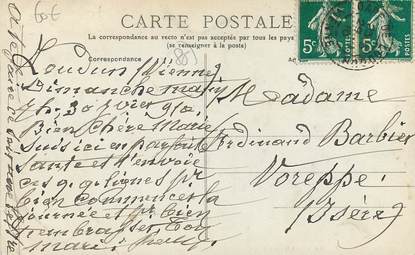 60E
CARTE POSTALE
La correspondance au recto n'est pas acceptée par tous les pays
(se renseigner à la poste)
Correspondance
5c 5c
Loudun (Vienne)
Dimanche matin
7h. 30
Bien chère Marie
suis ici en parfaite
santé et t'envoie
ces qq lignes pr
bien commencer la
journée et pr bien
t'embrasser Ton
mari
Madame
Ferdinand Barbier
Voreppe
Isère